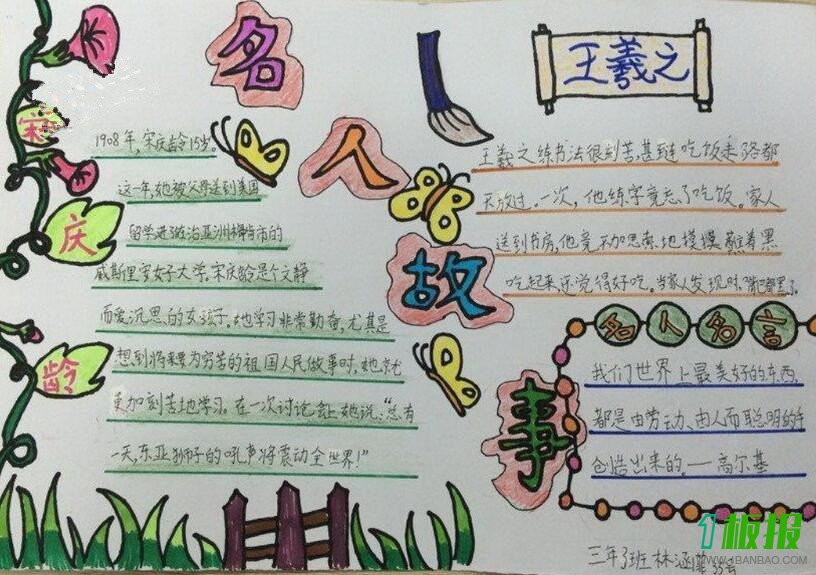 名人故事
宋庆龄
1908年,宋庆龄15岁。
这一年,她被父母送到美国
留学进了佐治亚州梅肯市的
威斯里安女子大学。宋庆龄是个文静
而爱沉思的女孩子。她学习非常勤奋,尤其是
想到将来要为穷苦的祖国人民做事时,她就
更加刻苦地学习。在一次讨论会上她说:“总有
一天,东亚狮子的吼声将震动全世界!”
王羲之
王羲之练书法很刻苦,甚至连吃饭走路都
不放过。一次,他练字竟忘了吃饭。家人
送到书房,他竟不加思索地馍馍蘸着黑
吃起来,还觉得好吃。当家人发现时,嘴都黑了。
名人名言
我们世界上最美好的东西,
都是由劳动、由人而聪明的手
创造出来的。——高尔基
三年3班 林涵 33号
板报
WWW.1BANBAO.COM